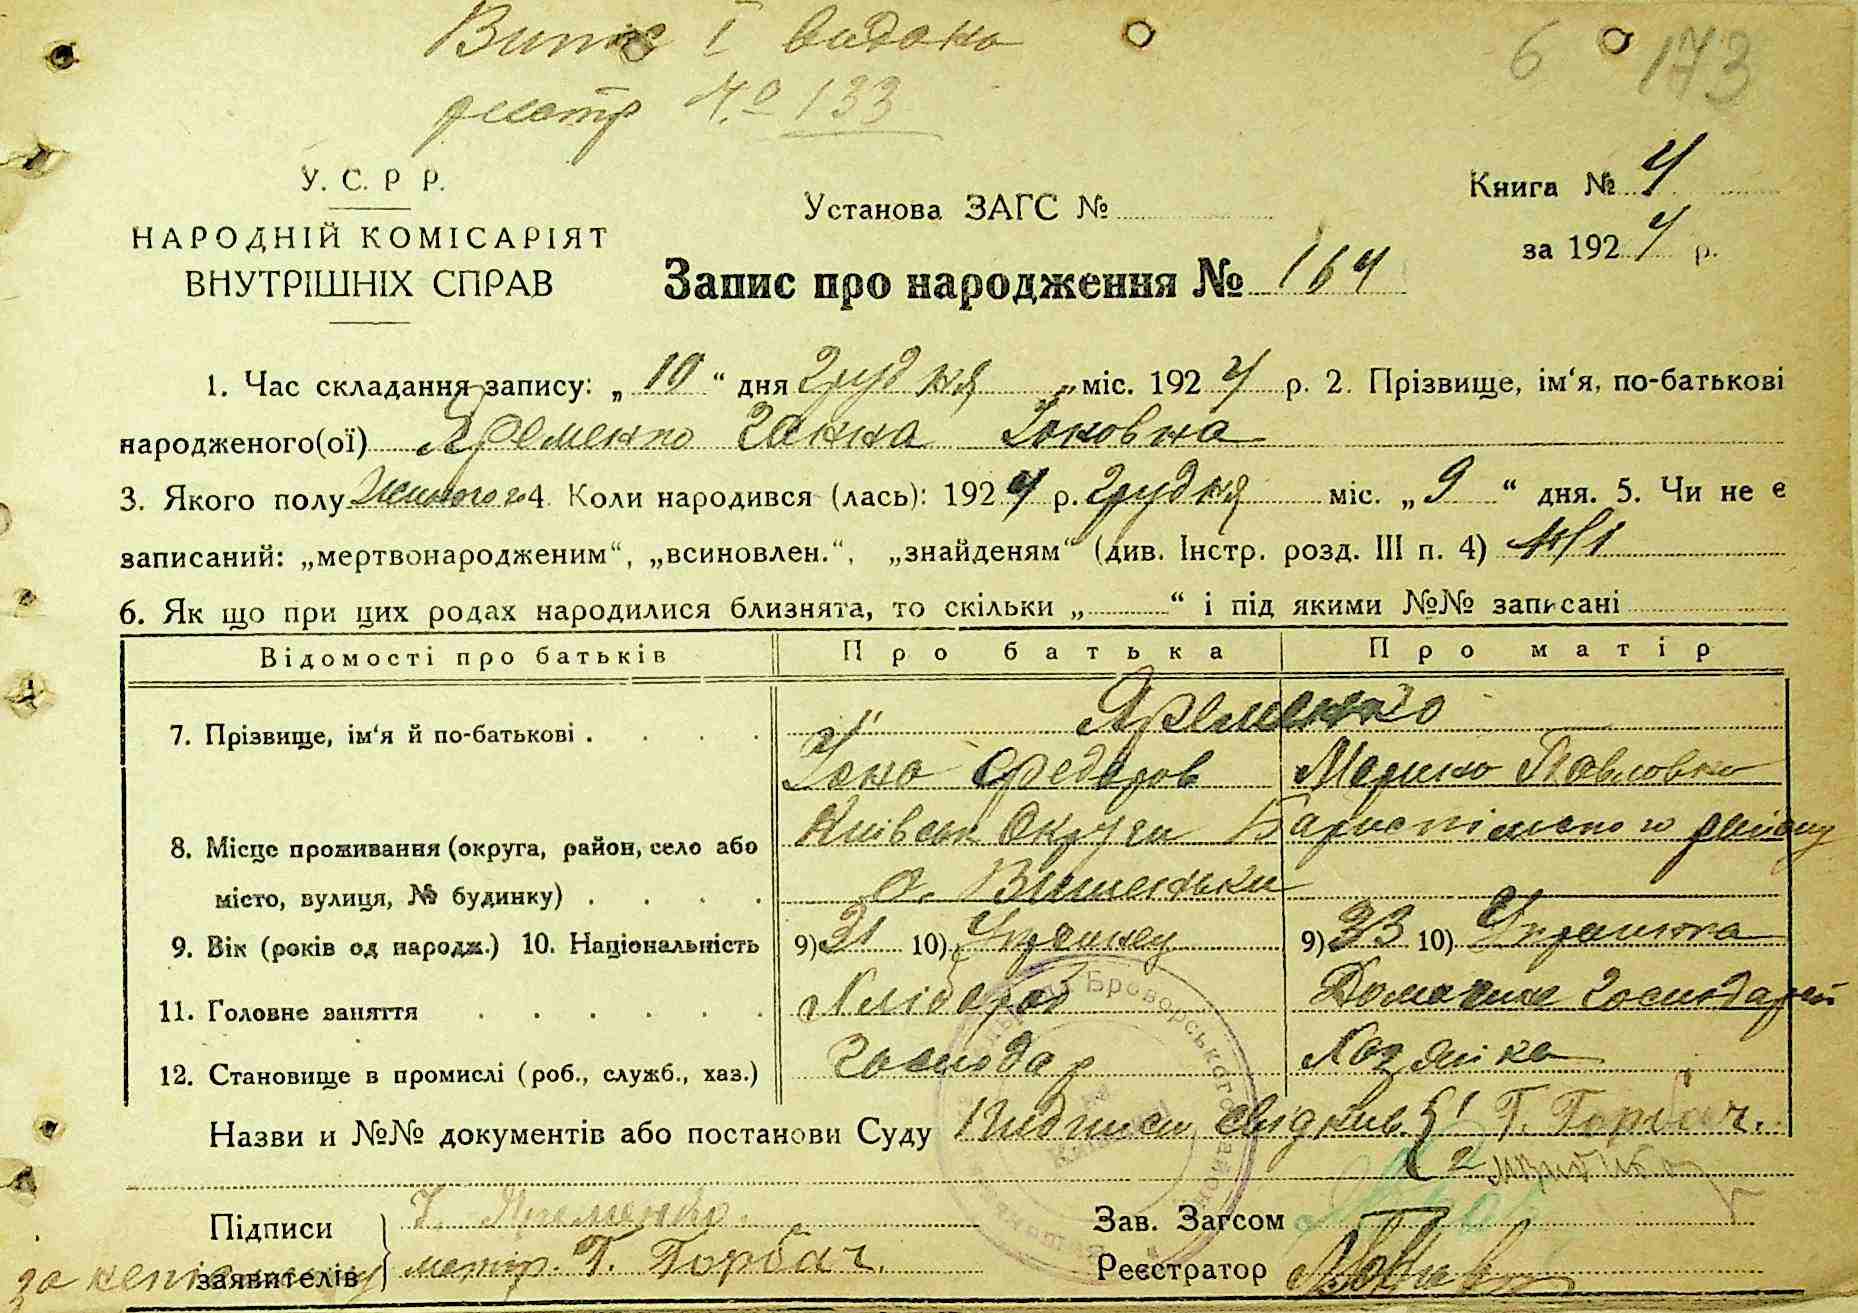 Випис і видана
реєстр № 133
6 173
У. С. Р Р.
НАРОДНІЙ КОМІСАРІЯТ
ВНУТРІШНІХ СПРАВ
Установа ЗАГС №
Книга № 4
за 1924 р.
Запис про народження № 164
1. Час складання запису: „ 10 “ дня Грудня міс. 1924 р. 2. Прізвище, ім‘я, по-батькові
народженого(ої) Яременко Ганна Йоновна
3. Якого полу жиночого 4. Коли народився (лась): 1924 р. Грудня міс. „ 9 “ дня. 5. Чи не є
записаний: „мертвонародженим“, „всиновлен.“, „знайденям“ (див. Інстр. розд. III п. 4)
6. Як що при цих родах народилися близнята, то скільки „ “ і під якими №№ записані
Відомості про батьків Про батька Про матір
7. Прізвище, ім‘я й по-батькові . . . . Яременко
Йона Федоров Марина Павловна
8. Місце проживання (округа, район, село або Київськ Округи Бариспільского району
місто, вулиця, № будинку) . . . . с. Вишеньки
9. Вік (років од народж.) 10. Національність 9) 31 10) Украинец 9) 33 10) Украинка
11. Головне заняття . . . . . . Хлібороб Домашне Господарств
12. Становище в промислі (роб., служб., хаз.) Господар Хозяйка
Назви и №№ документів або постанови Суду Підписи свідків { 1 Г. Горбач.
2
Підписи
заявителів
Яременко.
Г. Горбач.
Зав. Загсом
Реєстратор
Броворського